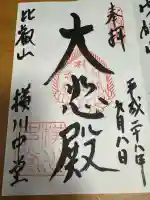 奉拝
平成二十八年九月八日
大悲殿
比叡山
横川中堂